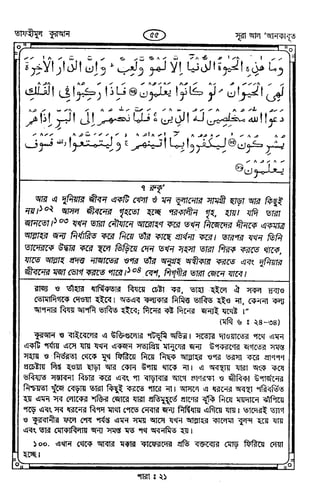 তাফহীমুল কুরআন
৫৫
সূরা আল 'আনকাবূত
وَمَا هٰذِهِ الْحَيٰوةُ الدُّنْيَا إِلَّا لَهْوٌ وَّلَعِبٌ ۚ وَإِنَّ الدَّارَ الْاٰخِرَةَ
لَهِيَ الْحَيَوَانُ ۘ لَوْ كَانُوْا يَعْلَمُوْنَ ۝ فَإِذَا رَكِبُوْا فِي الْفُلْكِ
دَعَوُا اللّٰهَ مُخْلِصِيْنَ لَهُ الدِّيْنَ ۚ فَلَمَّا نَجّٰىهُمْ إِلَى الْبَرِّ إِذَا هُمْ
يُشْرِكُوْنَ ۝ لِيَكْفُرُوْا بِمَا اٰتَيْنٰهُمْ ۙ وَلِيَتَمَتَّعُوْا ۥ فَسَوْفَ
يَعْلَمُوْنَ ۝
৭ রুকূ'
আর এ দুনিয়ার জীবন একটি খেলা ও মন ভুলানোর সামগ্রী ছাড়া আর কিছুই
নয়।১০২ আসল জীবনের গৃহতো হচ্ছে পরকালীন গৃহ, হায়! যদি তারা
জানতো।১০৩ যখন তারা নৌযানে আরোহণ করে তখন নিজেদের দীনকে একমাত্র
আল্লাহর জন্য নির্ধারিত করে নিয়ে তাঁর কাছে প্রার্থনা করে। তারপর যখন তিনি
তাদেরকে উদ্ধার করে স্থলে ভিড়িয়ে দেন তখন সহসা তারা শির্ক করতে থাকে,
যাতে আল্লাহ প্রদত্ত নাজাতের ওপর তাঁর অনুগ্রহ অস্বীকার করতে এবং দুনিয়ার
জীবনের মজা ভোগ করতে পারে।১০৪ বেশ, শিগ্গীর তারা জেনে যাবে।
রাজ্য ও তাঁহার ধার্মিকতার বিষয়ে চেষ্টা কর, তাহা হইলে ঐ সকল দ্রব্যও
তোমাদিগকে দেওয়া হইবে। অতএব কল্যকার নিমিত্ত ভাবিত হইও না, কেননা কল্য
আপনার বিষয় আপনি ভাবিত হইবে; দিনের কষ্ট দিনের জন্যই যথেষ্ট।"
(মথি ৬ : ২৪-৩৪)
কুরআন ও বাইবেলের এ উক্তিগুলোর পটভূমি অভিন্ন। সত্যের দাওয়াতের পথে এমন
একটি পর্যায় এসে যায় যখন একজন সত্যপ্রিয় মানুষের জন্য উপকরণের জগতের সমস্ত
সহায় ও নির্ভরতা থেকে মুখ ফিরিয়ে নিয়ে নিছক আল্লাহর ওপর ভরসা করে প্রাণপণ
প্রচেষ্টায় লিপ্ত হওয়া ছাড়া আর কোন উপায় থাকে না। এ অবস্থায় যারা অংক কষে
ভবিষ্যত সম্ভাবনা বিচার করে এবং পা বাড়াবার আগে প্রাণরক্ষা ও জীবিকা উপার্জনের
নিশ্চয়তা খুঁজে বেড়ায় তারা কিছুই করতে পারে না। আসলে এ ধরনের অবস্থা পরিবর্তিত
হয় এমন সব লোকের শক্তির জোরে যারা প্রতিমুহূর্তে প্রাণের ঝুঁকি নিয়ে ময়দানে ঝাঁপিয়ে
পড়ে এবং সব ধরনের বিপদ মাথা পেতে নেবার জন্য নির্দ্বিধায় এগিয়ে যায়। তাদেরই ত্যাগ
ও কুরবানীর ফলে শেষ পর্যন্ত এমন সময় আসে যখন আল্লাহর কালেমা বুলন্দ হয়ে যায়
এবং তার মোকাবিলায় অন্য সমস্ত মত পথ অবনমিত হয়।
১০০. এখান থেকে আবার মক্কার কাফেরদের প্রতি বক্তব্যের মোড় ফিরিয়ে দেয়া
হচ্ছে।
পারা : ২১